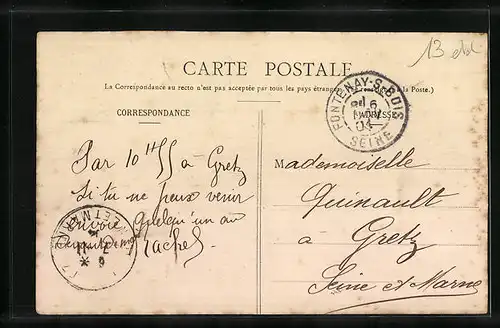 13
CARTE POSTALE
(La Correspondance au recto n'est pas acceptée par tous les pays étrangers
la Poste.)
CORRESPONDANCE
FONTENAY-S-BOIS
04
SEINE
Par 10 H 55 à Gretz
Si tu ne peux venir
envoie quelqu'un au
devant de moi
Rachel
Mademoiselle
Quinault
a Gretz
Seine et Marne